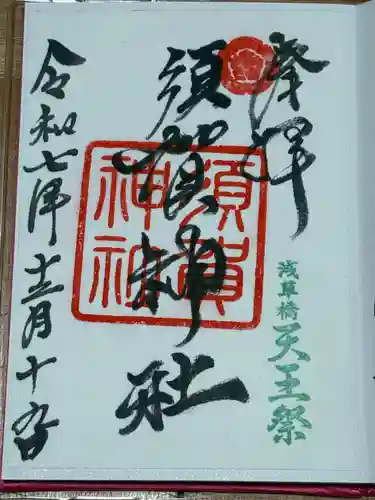 奉拝
浅草橋
天王祭
須賀神社
須賀
神社
令和七年十二月十五日